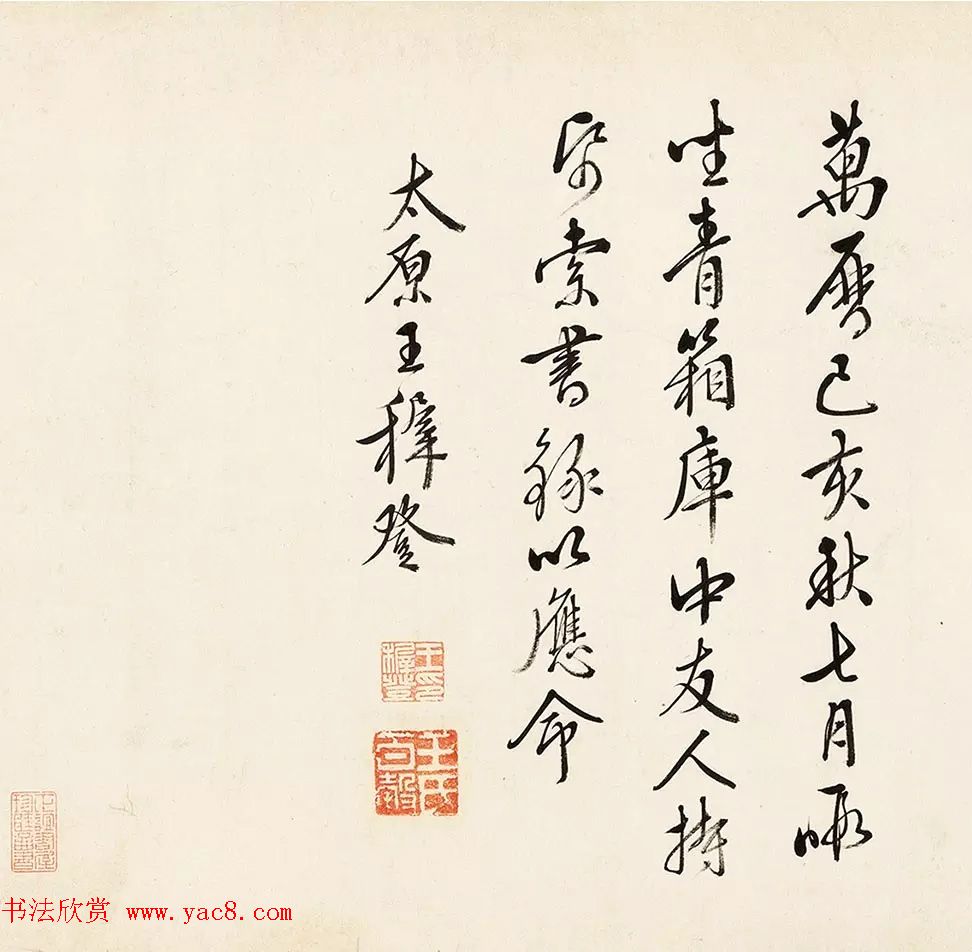 萬曆己亥秋七月暇
坐青箱庫中友人持
帋索書錄以應命
太原王穉登
王印穉登
王氏百穀
书法欣赏 www.yac8.com